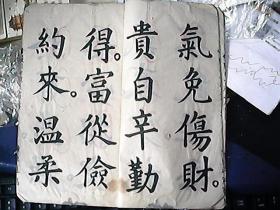 氣免傷財。
貴自辛勤
得。富從儉
約來。溫柔